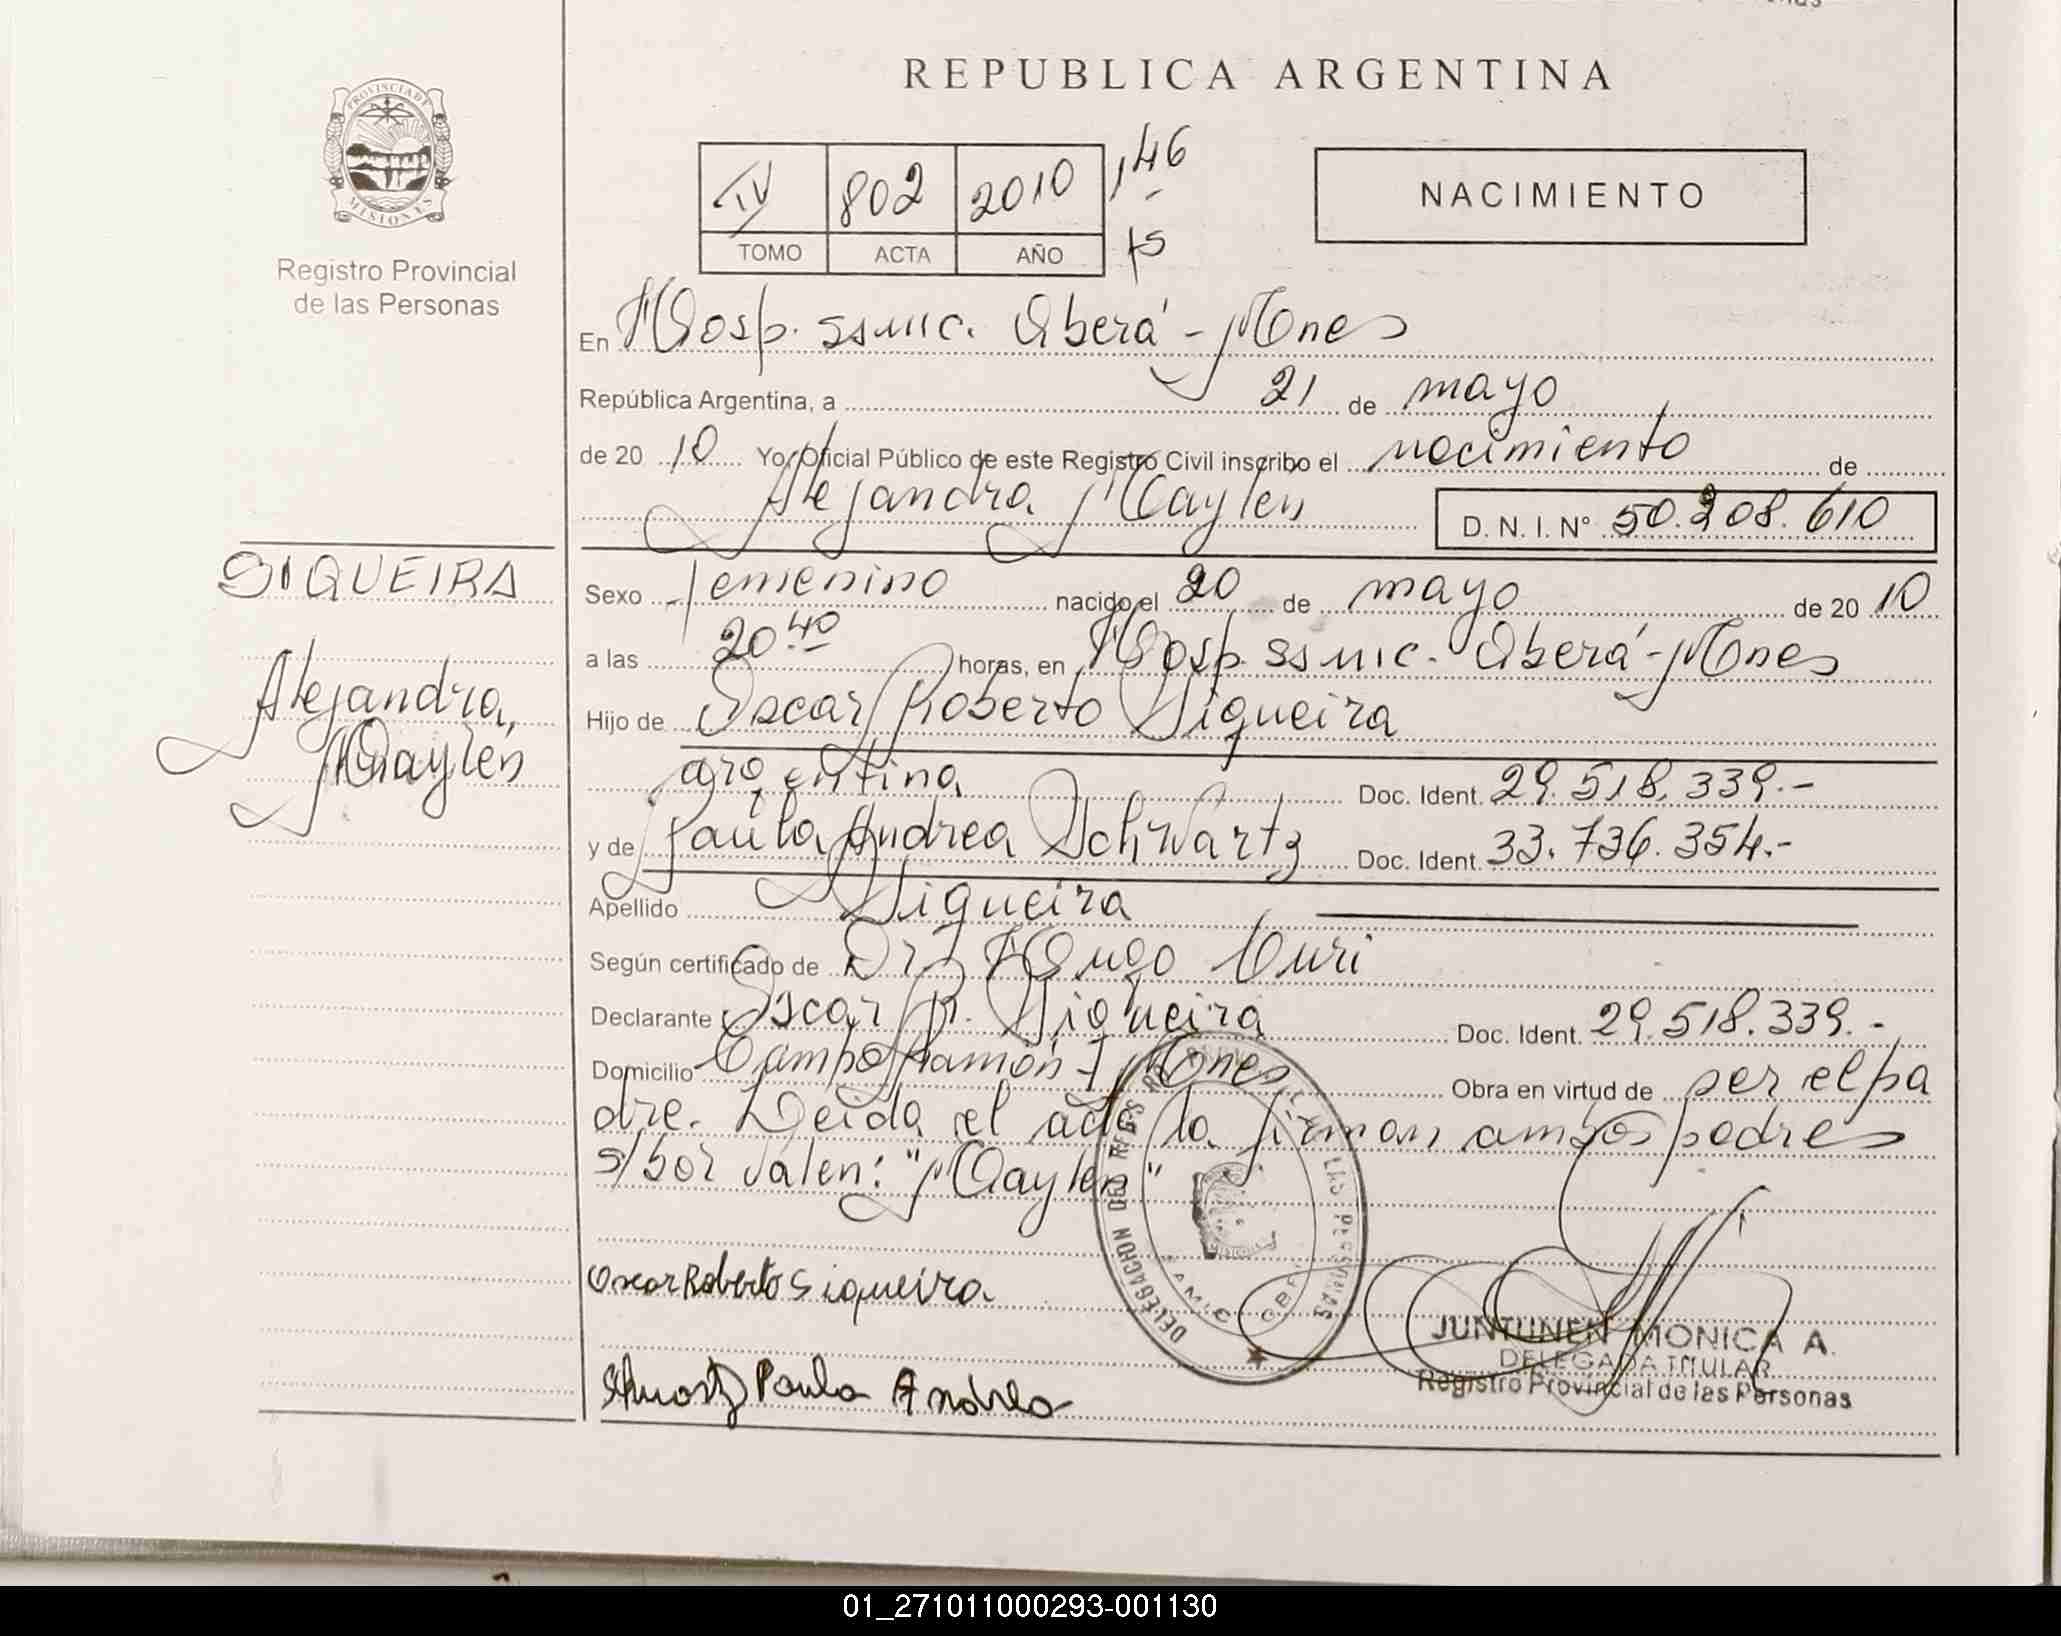 REPUBLICA ARGENTINA
PROVINCIA DE
MISIONES
Registro Provincial
de las Personas
IV 802 2010 146
TOMO ACTA AÑO 15
NACIMIENTO
En Hosp. ssmic. Oberá - Mnes
República Argentina, a 21 de mayo
de 20 10 Yo, Oficial Público de este Registro Civil inscribo el nacimiento de
Alejandra Maylen D. N. I. N° 50.208.610
SIQUEIRA
Alejandra,
Maylén
Sexo femenino nacido el 20 de mayo de 20 10
a las 20.40 horas, en Hosp. ssmic. Oberá - Mnes
Hijo de Oscar Roberto Siqueira
argentina Doc. Ident. 29.518.339.-
y de Paula Andrea Schwartz Doc. Ident. 33.736.354.-
Apellido Siqueira
Según certificado de Dr. Hugo
Declarante Oscar R. Siqueira Doc. Ident. 29.518.339.-
Domicilio Campo Ramón - Mnes Obra en virtud de ser el pa
dre. Leida el acta la firman ambos padres
s/bor valen: "Maylen"
Oscar Roberto Siqueira
Paula Andrea
DELEGACION DEL REGIS LAS PERSONAS
JUNTUNEN MONICA A.
DELEGADA TITULAR
Registro Provincial de las Personas
01_271011000293-001130